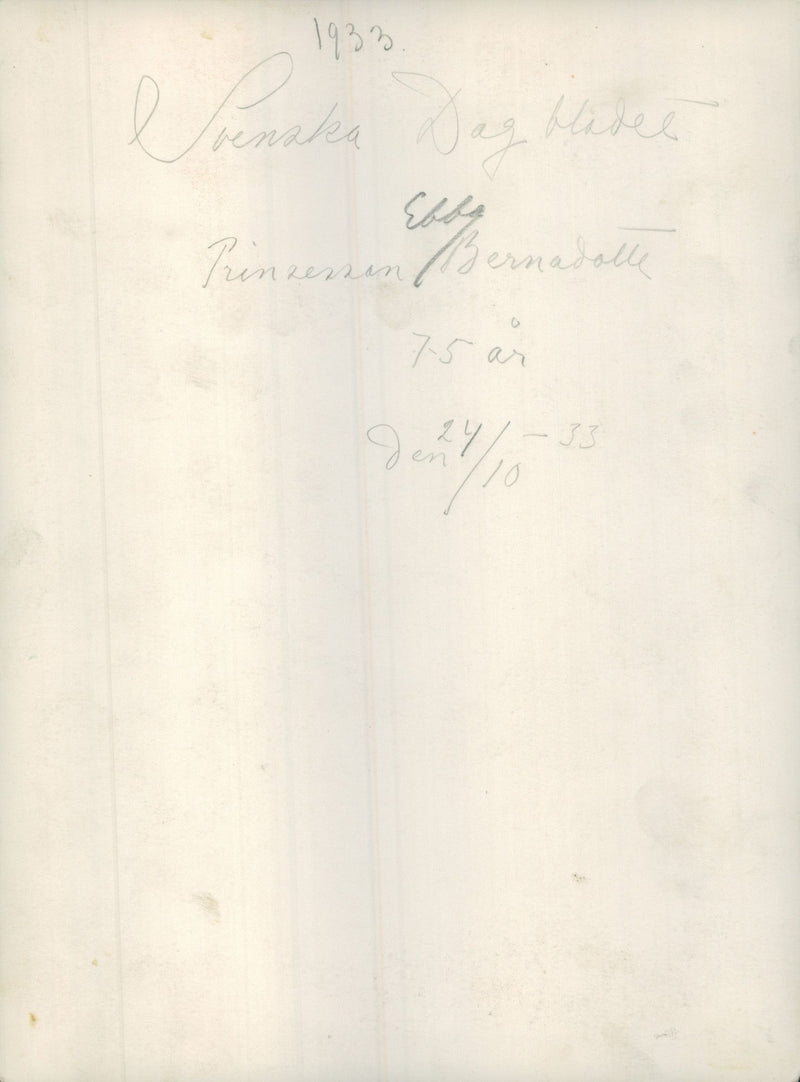 1933.
Svenska Dagbladet
Prinsessan Ebba Bernadotte
75 år
den 24/10 - 33